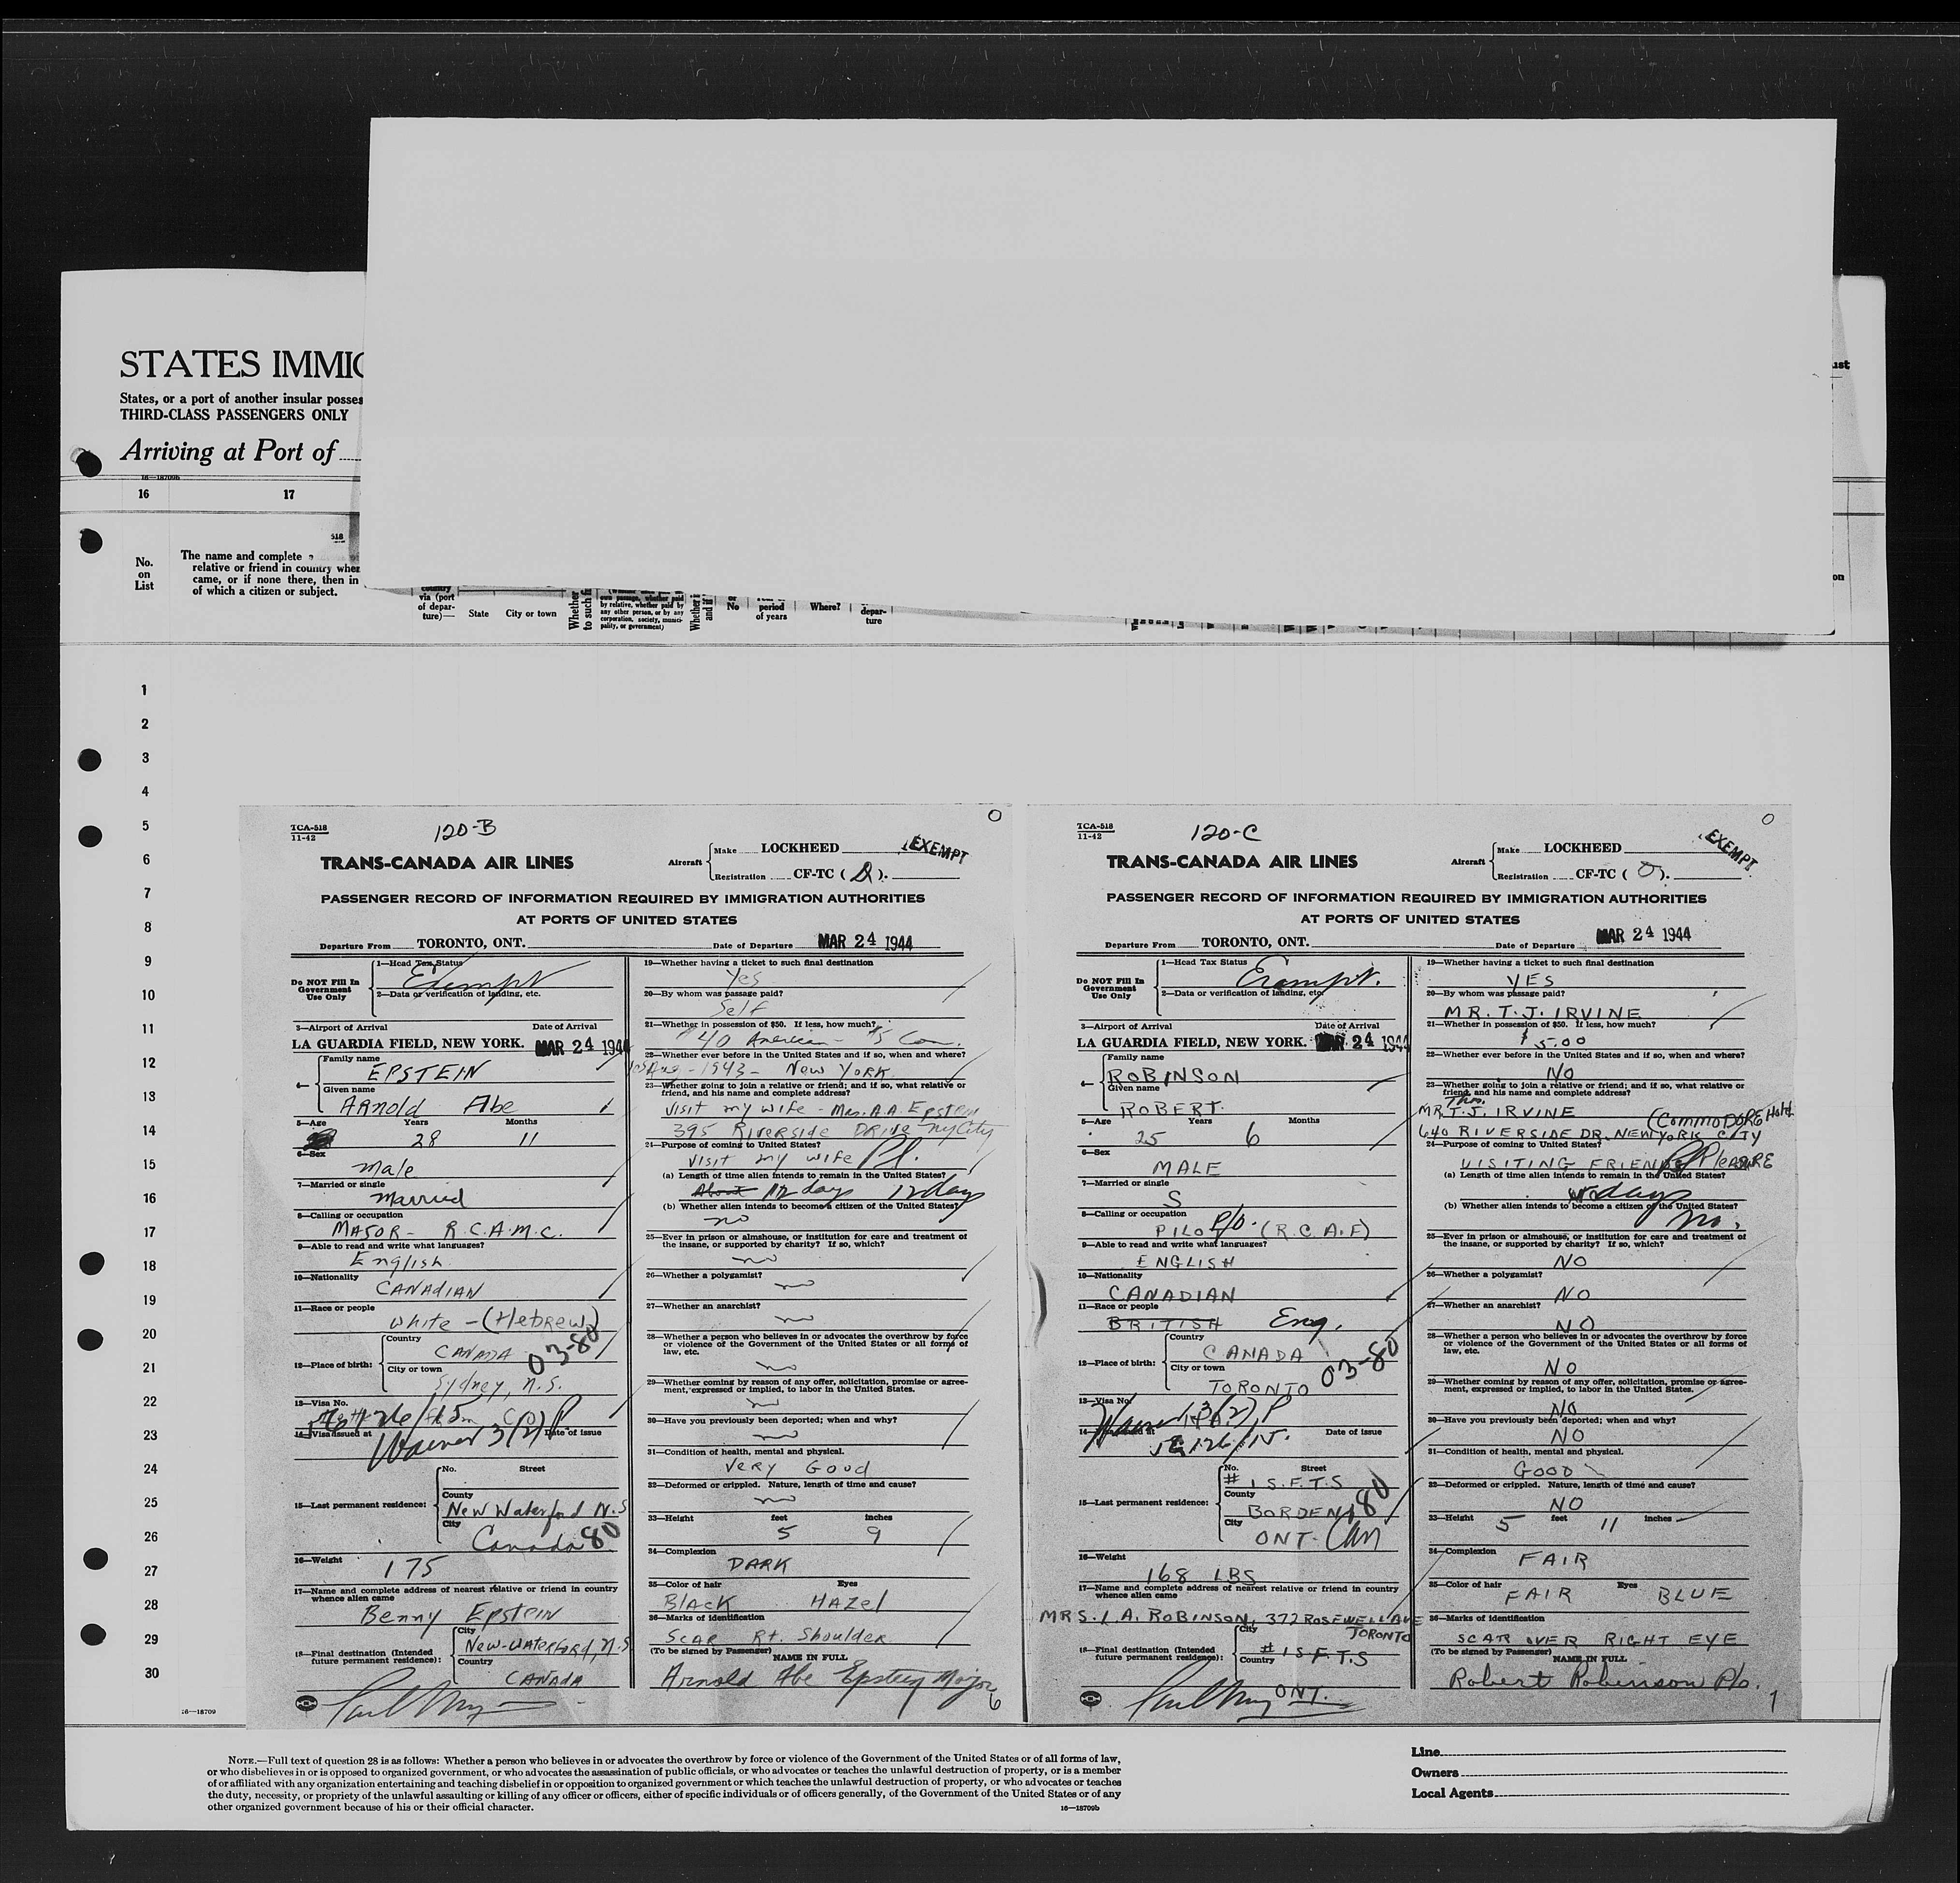 STATES IMMIG
States, or a port of another insular posses
THIRD-CLASS PASSENGERS ONLY
Arriving at Port of
16—18709b
16 17
518
No. on List
The name and complete
relative or friend in country when
came, or if none there, then in
of which a citizen or subject.
country
via (port
of depar-
ture)—
State City or town
Whether
to such f
own passage, whether paid
by relative, whether paid by
any other person, or by any
corporation, society, munici-
pality, or government)
No
period
of years
Where?
depar-
ture
ust
on
1
2
3
4
5
6
7
8
9
10
11
12
13
14
15
16
17
18
19
20
21
22
23
24
25
26
27
28
29
30
TCA-518
11-42
120-B
TRANS-CANADA AIR LINES
Aircraft
Make LOCKHEED
EXEMPT
Registration CF-TC ( ).
PASSENGER RECORD OF INFORMATION REQUIRED BY IMMIGRATION AUTHORITIES
AT PORTS OF UNITED STATES
Departure From TORONTO, ONT. Date of Departure MAR 24 1944
Do NOT Fill In
Government
Use Only
1—Head Tax Status
Exempt
2—Data or verification of landing, etc.
3—Airport of Arrival Date of Arrival
LA GUARDIA FIELD, NEW YORK. MAR 24 1944
4—
Family name
EPSTEIN
Given name
Arnold Abe
5—Age Years Months
28 11
6—Sex
Male
7—Married or single
Married
8—Calling or occupation
MAJOR- R.C.A.M.C.
9—Able to read and write what languages?
English.
10—Nationality
CANADIAN
11—Race or people
White - (Hebrew)
12—Place of birth:
Country
CANADA
03-80
City or town
Sydney, N.S.
13—Visa No.
14—Visa issued at Date of issue
Waiver 3(2) P
15—Last permanent residence:
No. Street
County
New Waterford N.S
City
Canada 80
16—Weight
175
17—Name and complete address of nearest relative or friend in country
whence alien came
Benny Epstein
18—Final destination (Intended
future permanent residence):
City
New-Waterford, N.S
Country
CANADA
19—Whether having a ticket to such final destination
Yes
20—By whom was passage paid?
Self
21—Whether in possession of $50. If less, how much?
$40 American - $5 Can.
22—Whether ever before in the United States and if so, when and where?
Aug - 1943 - New York
23—Whether going to join a relative or friend; and if so, what relative or
friend, and his name and complete address?
Visit my wife - Mrs. A.A. Epstein
395 Riverside Drive NY City
24—Purpose of coming to United States?
Visit my wife Pl.
(a) Length of time alien intends to remain in the United States?
About 12 days 12 days
(b) Whether alien intends to become a citizen of the United States?
no
25—Ever in prison or almshouse, or institution for care and treatment of
the insane, or supported by charity? If so, which?
no
26—Whether a polygamist?
no
27—Whether an anarchist?
no
28—Whether a person who believes in or advocates the overthrow by force
or violence of the Government of the United States or all forms of
law, etc.
no
29—Whether coming by reason of any offer, solicitation, promise or agree-
ment, expressed or implied, to labor in the United States.
no
30—Have you previously been deported; when and why?
no
31—Condition of health, mental and physical.
Very Good
32—Deformed or crippled. Nature, length of time and cause?
no
33—Height feet inches
5 9
34—Complexion
DARK
35—Color of hair Eyes
Black Hazel
36—Marks of identification
Scar Rt. Shoulder
(To be signed by Passenger)
NAME IN FULL
Arnold Abe Epstein Major
6
TCA-518
11-42
120-C
TRANS-CANADA AIR LINES
Aircraft
Make LOCKHEED
EXEMPT
Registration CF-TC (O).
PASSENGER RECORD OF INFORMATION REQUIRED BY IMMIGRATION AUTHORITIES
AT PORTS OF UNITED STATES
Departure From TORONTO, ONT. Date of Departure MAR 24 1944
Do NOT Fill In
Government
Use Only
1—Head Tax Status
Exempt.
2—Data or verification of landing, etc.
3—Airport of Arrival Date of Arrival
LA GUARDIA FIELD, NEW YORK. MAR 24 1944
4—
Family name
ROBINSON
Given name
ROBERT.
5—Age Years Months
25 6
6—Sex
MALE
7—Married or single
S
8—Calling or occupation
PILOT P/O. (R.C.A.F)
9—Able to read and write what languages?
ENGLISH
10—Nationality
CANADIAN
11—Race or people
BRITISH Eng.
12—Place of birth:
Country
CANADA
03-80
City or town
TORONTO
13—Visa No.
Waiver 3(2) P
Date of issue
15—Last permanent residence:
No. Street
# 1 S.F.T.S
County
BORDEN 80
City
ONT. Can
16—Weight
168 LBS
17—Name and complete address of nearest relative or friend in country
whence alien came
MRS. A. ROBINSON, 372 ROSEWELL AVE
TORONTO
18—Final destination (Intended
future permanent residence):
City
# 1 S.F.T.S
Country
ONT.
19—Whether having a ticket to such final destination
YES
20—By whom was passage paid?
MR. T. J. IRVINE
21—Whether in possession of $50. If less, how much?
$ 5.00
22—Whether ever before in the United States and if so, when and where?
NO
23—Whether going to join a relative or friend; and if so, what relative or
friend, and his name and complete address?
Thos.
MR. T. J. IRVINE (COMMODORE Hotel
640 RIVERSIDE DR. NEW YORK CITY
24—Purpose of coming to United States?
VISITING FRIENDS Pleasure
(a) Length of time alien intends to remain in the United States?
days
(b) Whether alien intends to become a citizen of the United States?
No.
25—Ever in prison or almshouse, or institution for care and treatment of
the insane, or supported by charity? If so, which?
NO
26—Whether a polygamist?
NO
27—Whether an anarchist?
NO
28—Whether a person who believes in or advocates the overthrow by force
or violence of the Government of the United States or all forms of
law, etc.
NO
29—Whether coming by reason of any offer, solicitation, promise or agree-
ment, expressed or implied, to labor in the United States.
NO
30—Have you previously been deported; when and why?
NO
31—Condition of health, mental and physical.
GOOD
32—Deformed or crippled. Nature, length of time and cause?
NO
33—Height 5 feet 11 inches
34—Complexion
FAIR
35—Color of hair Eyes
FAIR BLUE
36—Marks of identification
SCAR OVER RIGHT EYE
(To be signed by Passenger)
NAME IN FULL
Robert Robinson P/o.
16—18709
NOTE.—Full text of question 28 is as follows: Whether a person who believes in or advocates the overthrow by force or violence of the Government of the United States or of all forms of law,
or who disbelieves in or is opposed to organized government, or who advocates the assassination of public officials, or who advocates or teaches the unlawful destruction of property, or is a member
of or affiliated with any organization entertaining and teaching disbelief in or opposition to organized government or which teaches the unlawful destruction of property, or who advocates or teaches
the duty, necessity, or propriety of the unlawful assaulting or killing of any officer or officers, either of specific individuals or of officers generally, of the Government of the United States or of any
other organized government because of his or their official character.
16—18709b
Line
Owners
Local Agents